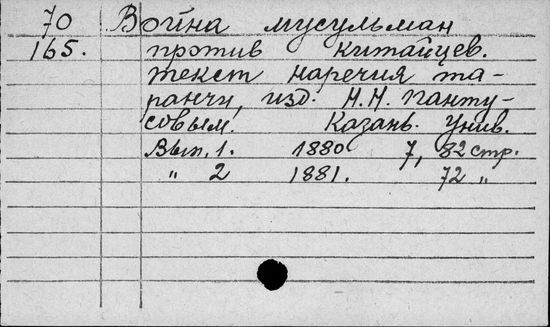 70 Война мусульман
165. против китайцев.
текст наречия та-
ранчи, изд. Н.Н. Панту-
совым. Казань. Унив.
Вып. 1. 1880 7, 82 стр.
„ 2 1881. 72 „